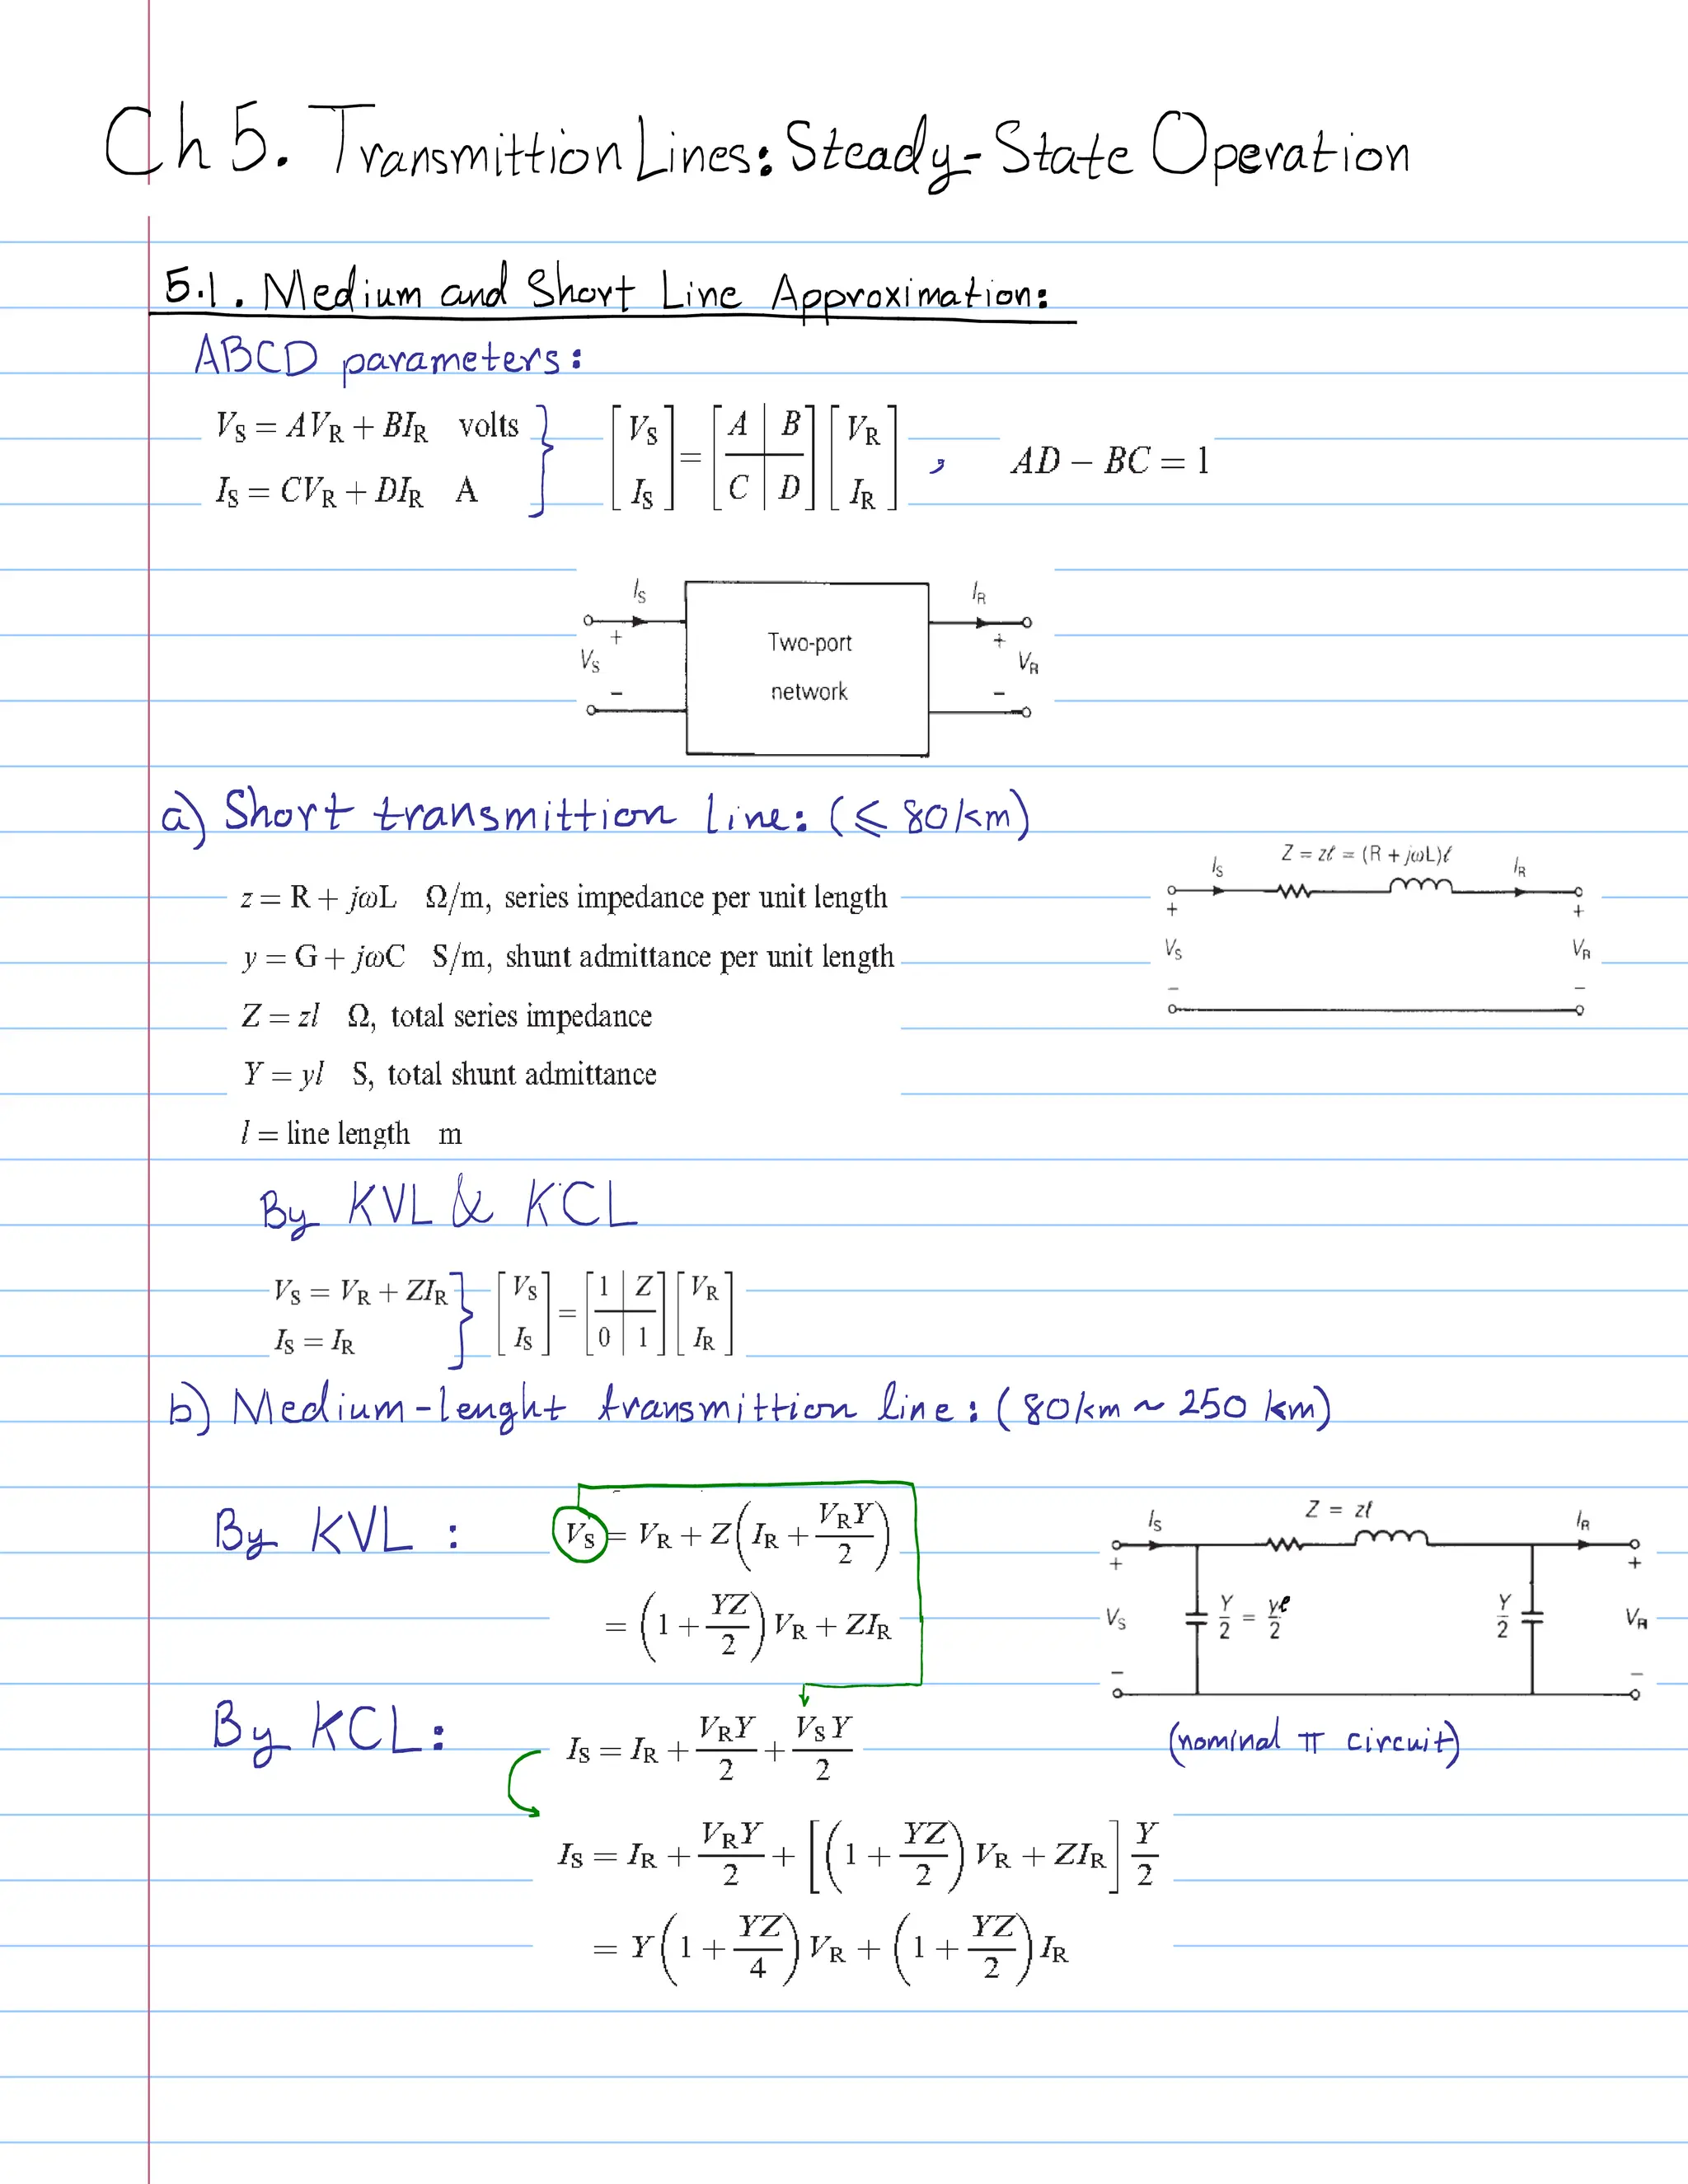 Ch 5. Transmittion Lines: Steady-State Operation
5.1. Medium and Short Line Approximation:
ABCD parameters:
V_S = AV_R + BI_R volts
I_S = CV_R + DI_R A
[V_S I_S] = [A B C D] [V_R I_R] , AD − BC = 1
I_S I_R
+ +
V_S Two-port network V_R
− −
a) Short transmittion line: (⩽ 80km)
z = R + jωL Ω/m, series impedance per unit length
y = G + jωC S/m, shunt admittance per unit length
Z = zl Ω, total series impedance
Y = yl S, total shunt admittance
l = line length m
I_S Z = zℓ = (R + jωL)ℓ I_R
+ +
V_S V_R
− −
By KVL & KCL
V_S = V_R + ZI_R
I_S = I_R
[V_S I_S] = [1 Z 0 1] [V_R I_R]
b) Medium-lenght transmittion line: (80km ~ 250 km)
By KVL : V_S = V_R + Z(I_R + V_RY/2)
= (1 + YZ/2) V_R + ZI_R
I_S Z = zℓ I_R
+ +
V_S Y/2 = yℓ/2 Y/2 V_R
− −
(nominal π circuit)
By KCL: I_S = I_R + V_RY/2 + V_SY/2
I_S = I_R + V_RY/2 + [(1 + YZ/2) V_R + ZI_R] Y/2
= Y(1 + YZ/4) V_R + (1 + YZ/2) I_R